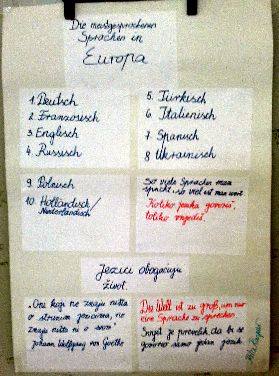 Die meistgesprochenen
Sprachen in
Europa
1. Deutsch
2. Französisch
3. Englisch
4. Russisch
5. Türkisch
6. Italienisch
7. Spanisch
8 Ukrainisch
9. Polnisch
10. Holländisch/
Niederländisch
So viele Sprachen man
spricht, so viel ist man wert
Koliko jezika govoriš,
toliko vrijediš
Jezici obogaćuju
život.
"Oni koji ne znaju ništa
o stranim jezicima, ne
znaju ništa ni o svom"
Johann Wolfgang von Goethe
Die Welt ist zu groß, um nur
eine Sprache zu sprechen
Svijet je prevelik da bi se
govorio samo jedan jezik